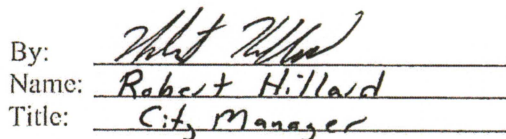 By:
Name: Robert Hillard
Title: City Manager